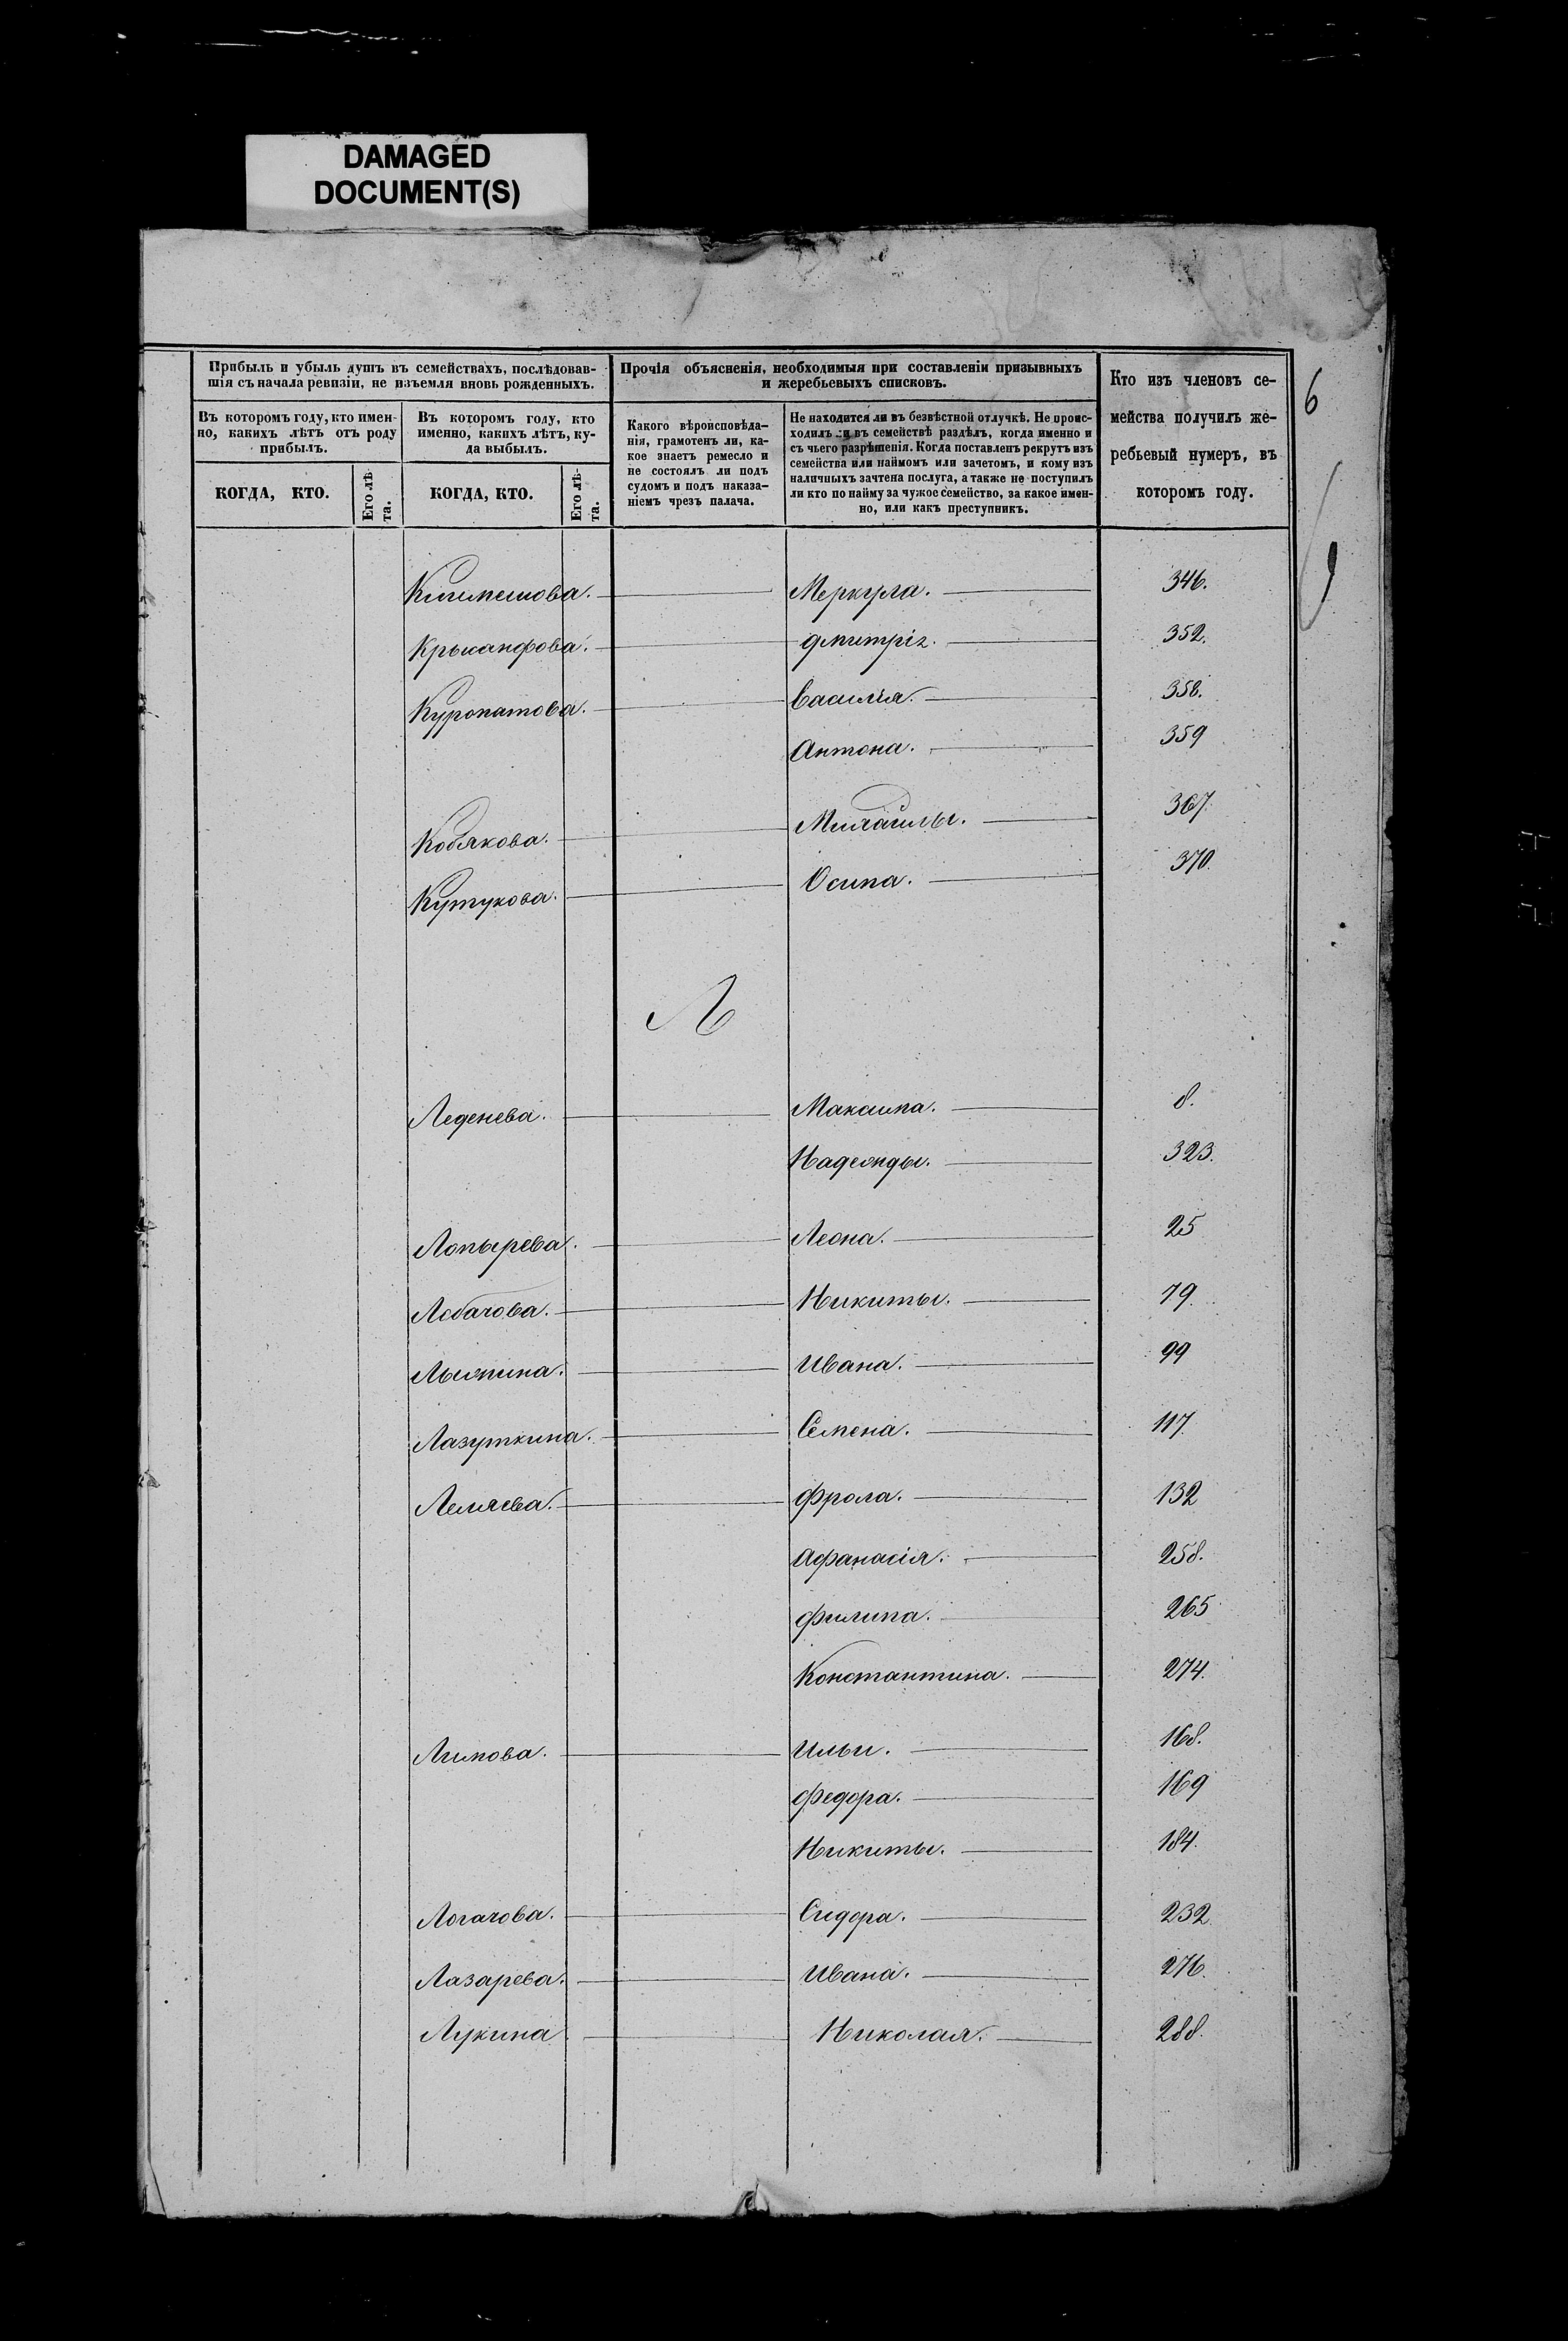 DAMAGED
DOCUMENT(S)
6
Прибыль и убыль душъ въ семействахъ, послѣдовав-
шія съ начала ревизіи, не изъемля вновь рожденныхъ.
Прочія объясненія, необходимыя при составленіи призывныхъ
и жеребьевыхъ списковъ.
Кто изъ членовъ се-
мейства получилъ же-
ребьевый нумеръ, въ
которомъ году.
Въ которомъ году, кто имен-
но, какихъ лѣтъ отъ роду
прибылъ.
Въ которомъ году, кто
именно, какихъ лѣтъ, ку-
да выбылъ.
Какого вѣроисповѣда-
нія, грамотенъ ли, ка-
кое знаетъ ремесло и
не состоялъ ли подъ
судомъ и подъ наказа-
ніемъ чрезъ палача.
Не находится ли въ безвѣстной отлучкѣ. Не проис-
ходилъ ли въ семействѣ раздѣлъ, когда именно и
съ чьего разрѣшенія. Когда поставленъ рекрутъ изъ
семейства или наймомъ или зачетомъ, и кому изъ
наличныхъ зачтена послуга, а также не поступилъ
ли кто по найму за чужое семейство, за какое имен-
но, или какъ преступникъ.
КОГДА, КТО.
Его лѣ-
та.
КОГДА, КТО.
Его лѣ-
та.
Меркула. 346.
352.
Куропатова. Василія. 358.
Антона. 359
Кобякова. Михаилы. 367.
Кутукова. Осипа. 370.
Л
Леденева. Максима. 8.
Надежды. 323.
Лопырева. Леона. 25
Лобачова. Никиты. 79.
Ивана. 99
Лазуткина. Семена. 117.
Фрола. 132
Афанасія. 258.
Филипа. 265
Константина. 274.
Лимова. Ильи. 168.
Федора. 169
Никиты. 184.
Логачова. Сидора. 232.
Лазарева. Ивана. 276.
Лукина Николая. 288.